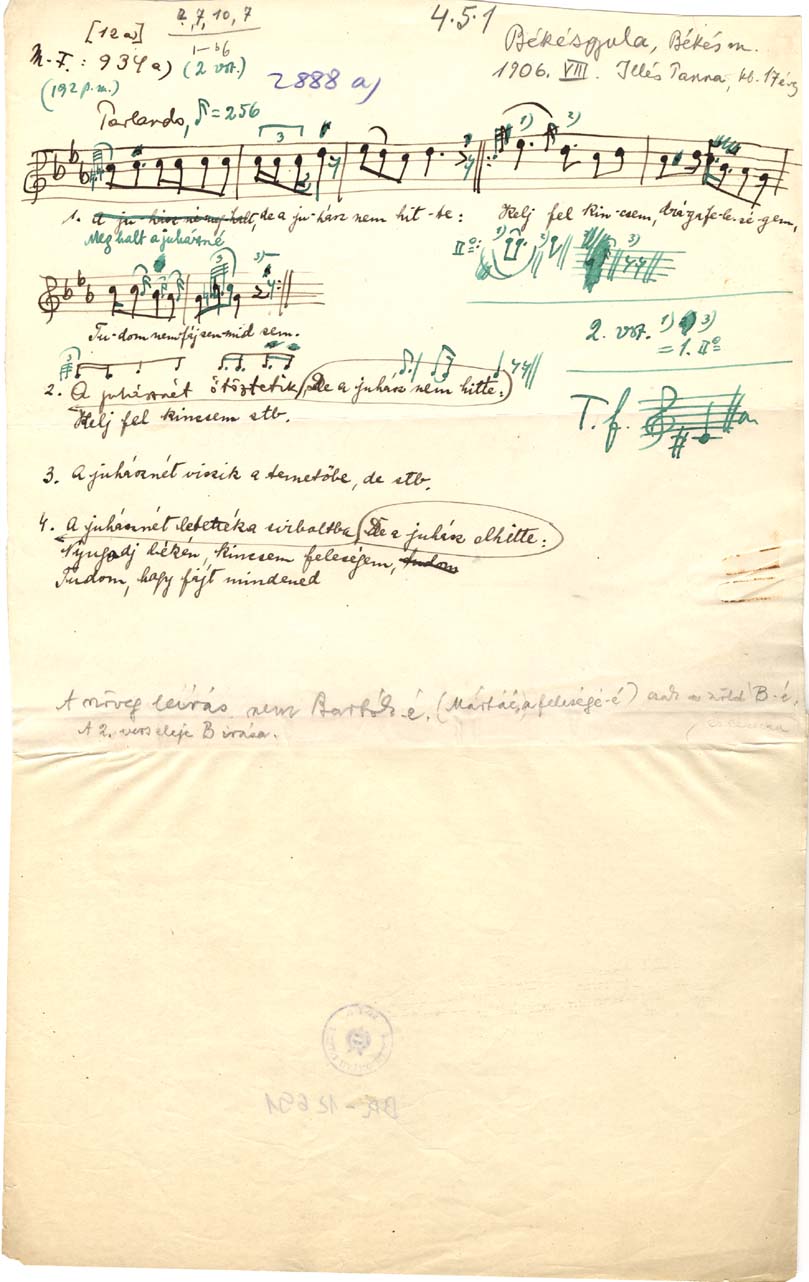 [12a] 2, 7, 10, 7 4.5.1
M.F.: 934 a) (2 vsz.) Békésgyula, Békés m.
(192 p.m.) 2888 a) 1906. VIII. Illés Panna, kb. 17 év
Parlando, ♪=256
3 1) 2)
1. A ju-hász né meg halt, de a ju-hász nem hit-te: Kelj fel kin-csem, drága fe-le-sé-gem,
Meg halt a juhászné
IIº: 1) 2) 3)
3 3)
Tu-dom nem fáj sem-mid sem.
2. vsz. 1) 3)
= 1. IIº
3
2. A juhásznét öltöztetik, De a juhász nem hitte:
Kelj fel kincsem stb.
T. f.
3. A juhásznét viszik a temetőbe, de stb.
4. A juhásznét letették a sirboltba, De a juhász elhitte:
Nyugodj békén, kincsem feleségem, tudom
Tudom, hogy fájt mindened
A szöveg leírás nem Bartók-é. (Mártáé, a feleségé-é) csak a zöld B-é.
A 2. vers eleje B írása.
BR - 12691